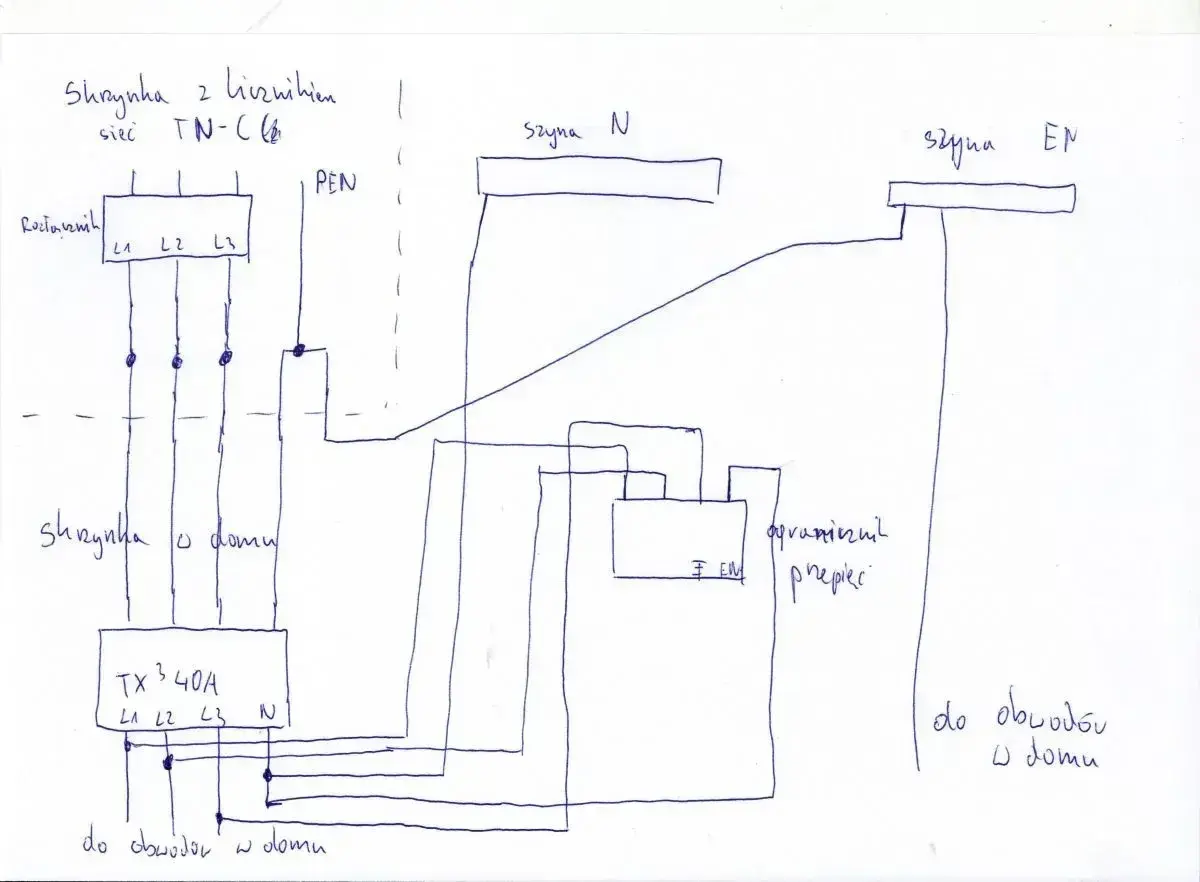 Skrzynka z licznikiem
sieć TN-C
PEN
szyna N
szyna EN
Rozłącznik
L1 L2 L3
Skrzynka w domu
ogranicznik
przepięć
EN
TX³ 40A
L1 L2 L3 N
do obwodów
w domu
do obwodów w domu